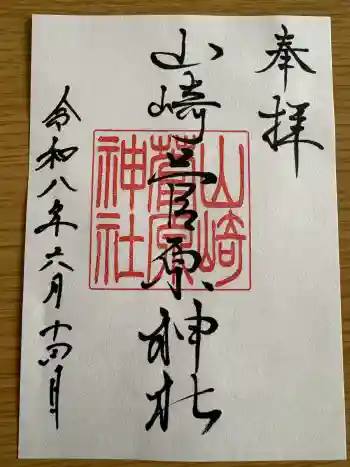 奉拝
山崎菅原神社
山崎菅原神社
令和八年六月十四日